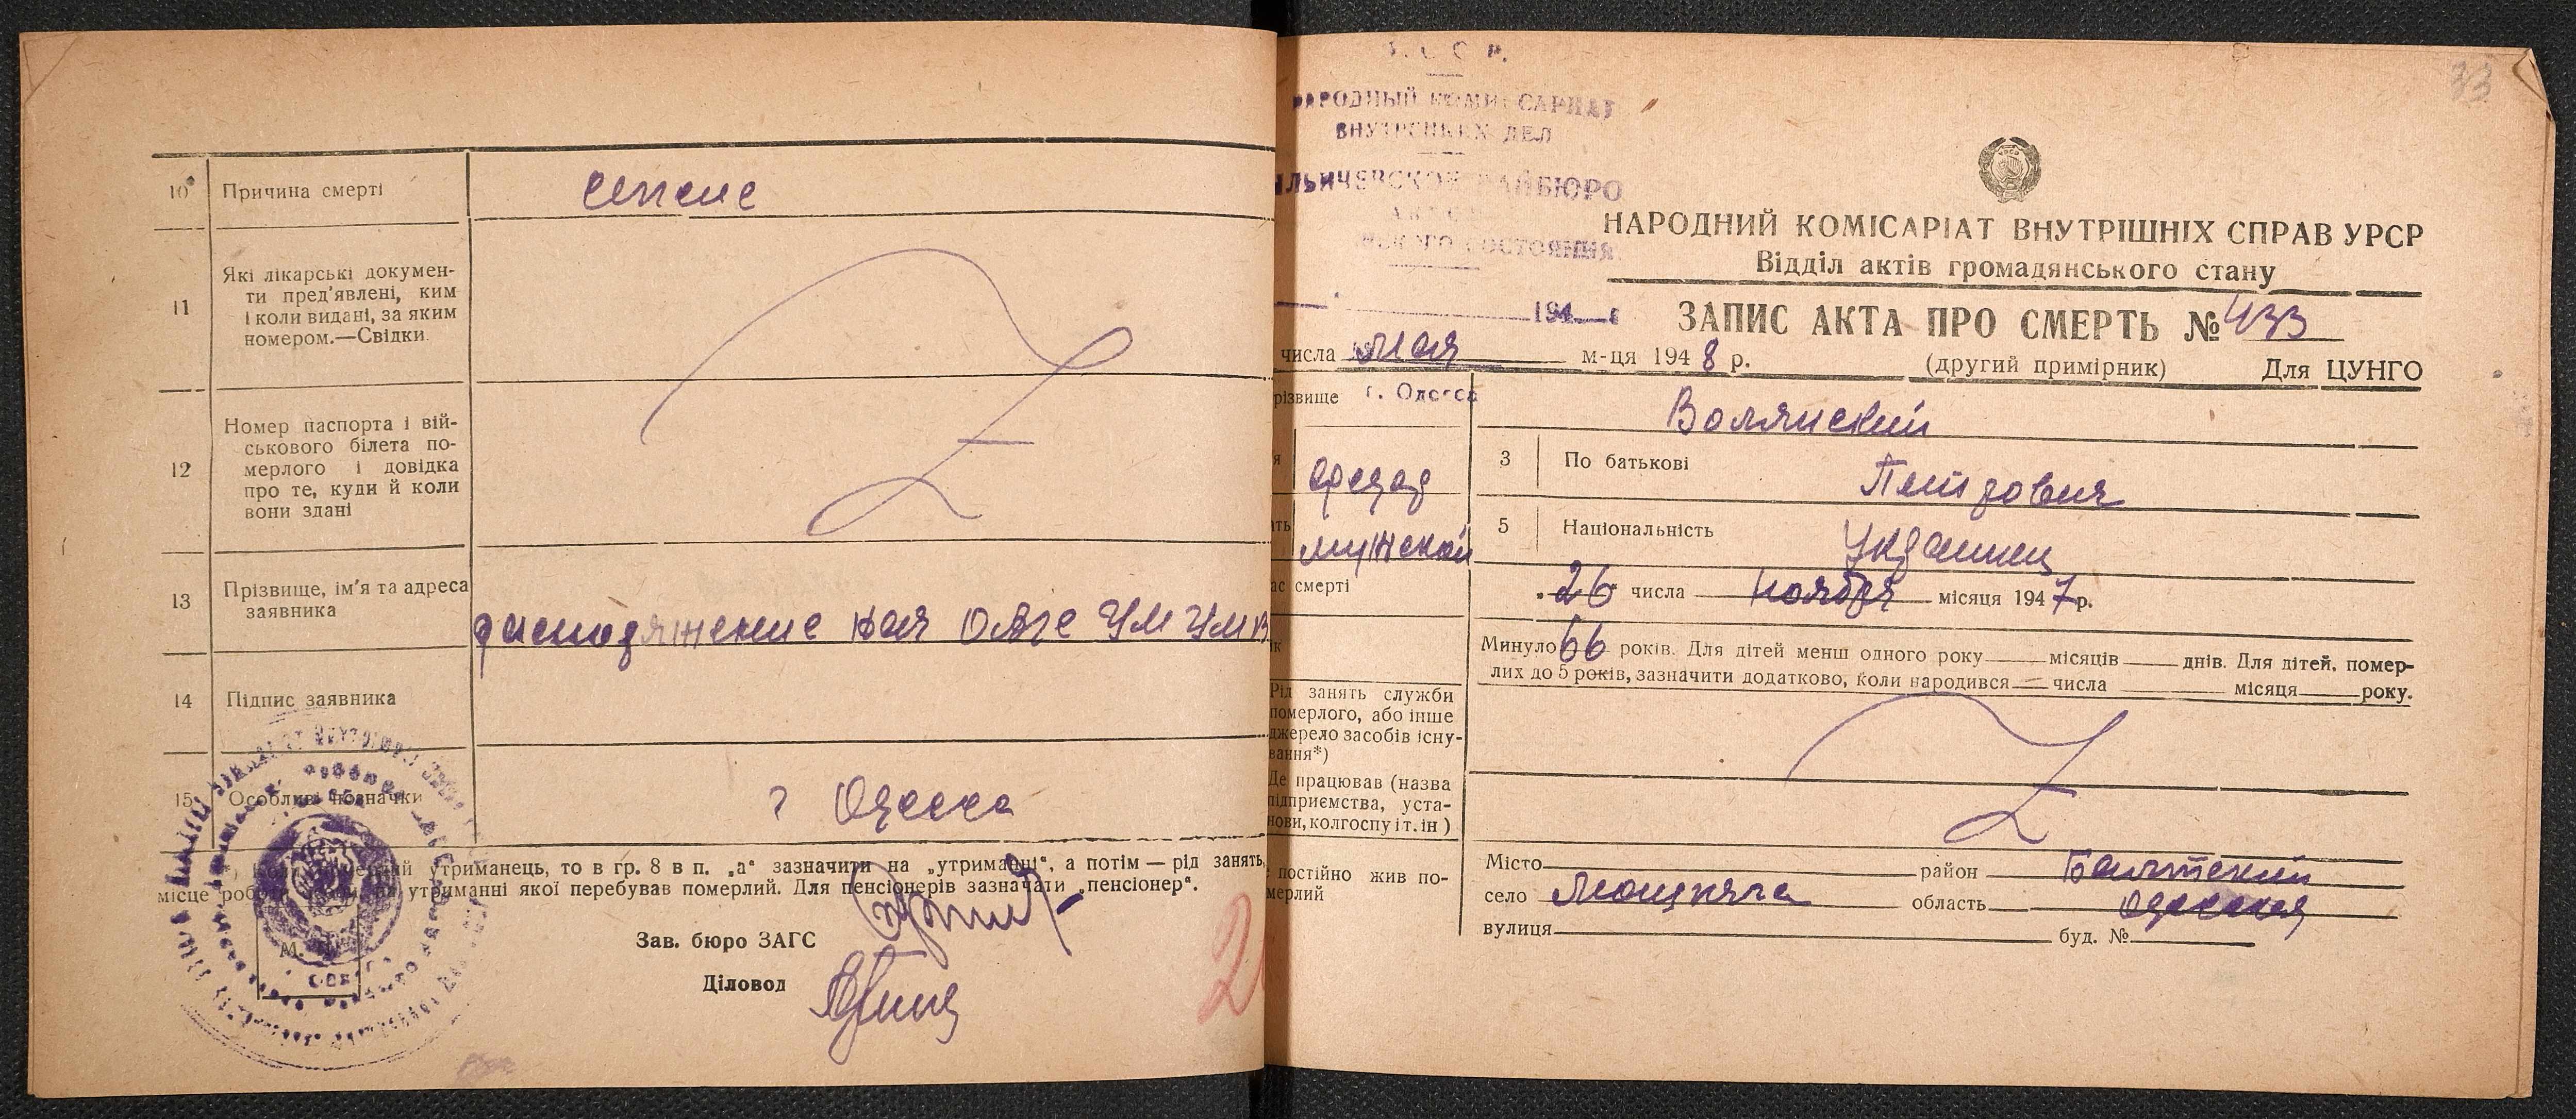 10 Причина смерті сепсис
11 Які лікарські докумен-
ти пред'явлені, ким
і коли видані, за яким
номером.—Свідки.
12 Номер паспорта і вій-
ськового білета по-
мерлого і довідка
про те, куди й коли
вони здані
13 Прізвище, ім'я та адреса
заявника
14 Підпис заявника
15 Особливі позначки г Одесса
утриманець, то в гр. 8 в п. „а“ зазначити на „утриманні“, а потім — рід занять,
місце утриманні якої перебував померлий. Для пенсіонерів зазначати „пенсіонер“.
Зав. бюро ЗАГС
Діловод
М.
2
33
НАРОДНЫЙ КОМИССАРИАТ
ВНУТРЕННИХ ДЕЛ
ИЛЬИЧЕВСКОЕ РАЙБЮРО
СОСТОЯНИЯ
194 г
НАРОДНИЙ КОМІСАРІАТ ВНУТРІШНІХ СПРАВ УРСР
Відділ актів громадянського стану
ЗАПИС АКТА ПРО СМЕРТЬ № 433
числа мая м-ця 1948 р. (другий примірник) Для ЦУНГО
різвище г. Одесса Волянский
3 По батькові Петрович
мужской 5 Національність Украинец
ас смерті 26 числа ноября місяця 1947 р.
Минуло 66 років. Для дітей менш одного року місяців днів. Для дітей, помер-
лих до 5 років, зазначити додатково, коли народився числа місяця року.
Рід занять служби
померлого, або інше
джерело засобів існу-
вання*)
Де працював (назва
підприємства, уста-
нови, колгоспу і т. ін )
постійно жив по-
мерлий
Місто район Балтский
село область Одесская
вулиця буд. №